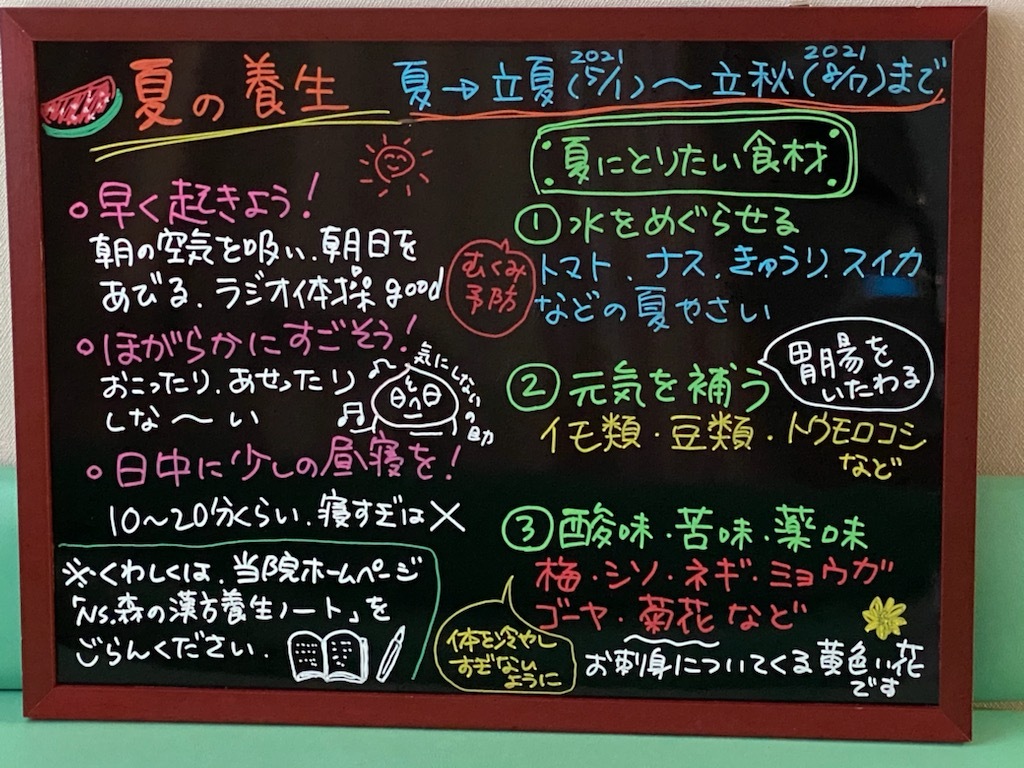 夏の養生
夏→立夏(5/1)〜立秋(8/7)まで
2021
2021
○早く起きよう!
朝の空気を吸い、朝日を
あびる、ラジオ体操good
○ほがらかにすごそう!
おこったり、あせったり
しな〜い
気にしないの
○日中に少しの昼寝を!
10〜20分くらい、寝すぎは×
※くわしくは、当院ホームページ
「Ns.森の漢方養生ノート」を
ごらんください.
夏にとりたい食材
①水をめぐらせる
むくみ
予防
トマト、ナス、きゅうり、スイカ
などの夏やさい
②元気を補う
胃腸を
いたわる
イモ類・豆類・トウモロコシ
など
③酸味・苦味・薬味
梅・シソ・ネギ・ミョウガ
ゴーヤ・菊花など
体を冷やし
すぎない
ように
お刺身についてくる黄色い花
です